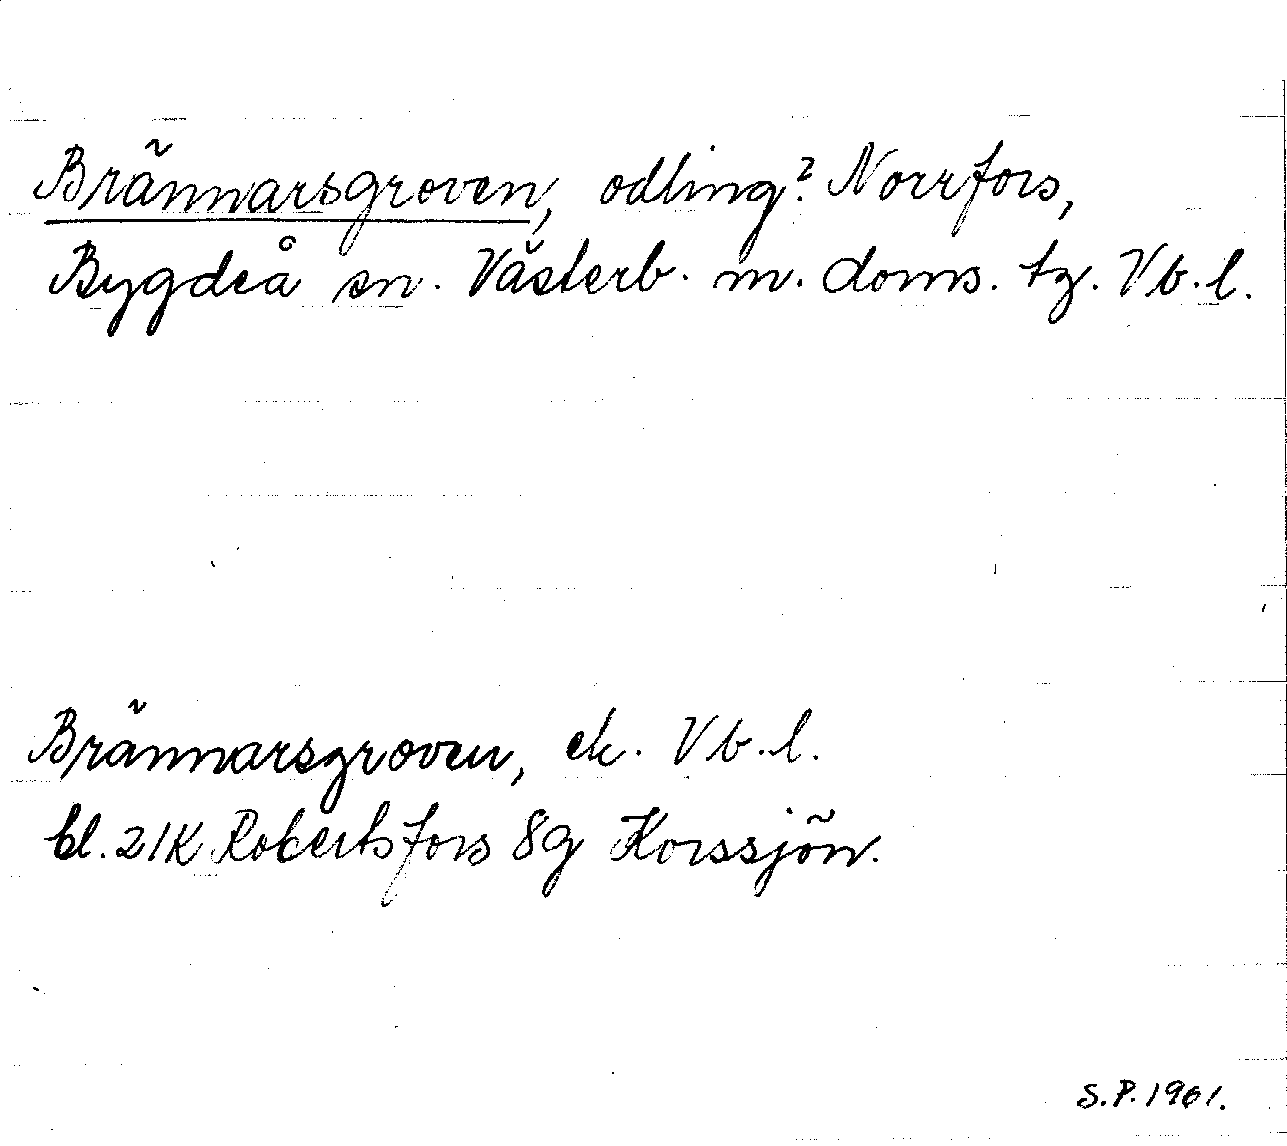 Brännarsgroven, odling? Norrfors,
Bygdeå sn. Västerb. m. doms. tg. Vb. l.
Brännarsgroven, ek. Vb. l.
bl. 21K Robertsfors 8g Korssjön.
S.P. 1961.